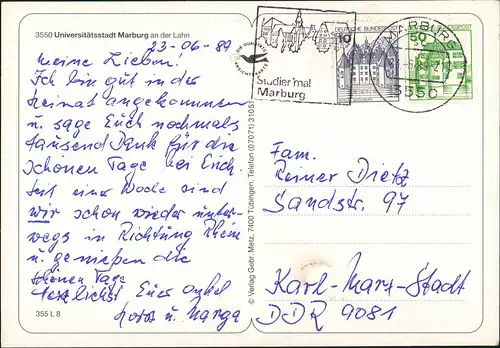 3550 Universitätsstadt Marburg an der Lahn
23-06-89
meine Lieben!
Ich bin gut in der
Heimat angekommen
u. sage Euch nochmals
tausend Dank für die
schönen Tage bei Euch.
Seit einer Woche sind
wir schon wieder unter-
wegs in Richtung Rhein
u. genießen die
schönen Tage
Herzlichst Euer Onkel
Horst u. Marga
355 L 8
© Verlag Gebr. Metz, 7400 Tübingen, Telefon (07071) 31051
Studier'mal
Marburg
DEUTSCHE BUNDESPOST
10
50
MARBURG
3550
Fam.
Reiner Dietz
Sandstr. 97
Karl-Marx-Stadt
DDR 9081